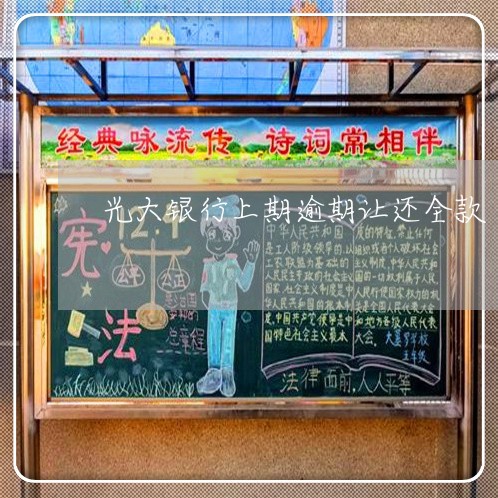 经典咏流传 诗词常相伴
光大银行上期逾期让还全款
12.4
宪
法
公平
公正
总章程
中华人民共和国
是工人阶级领导的,以
工农联盟为基础的
人民民主专政的社会主义
国家,社会主义制度是中
华人民共和国的根本制
度,中国共产党领导是中
国特色社会主义最本
质的特征,禁止任何
组织或者个人破坏社会
主义制度,中华人民共和
国的一切权利属于人民,
人民行使国家权力的机
关是全国人民代表大会
和地方各级人民代表
大会。
五年级
法律面前,人人平等